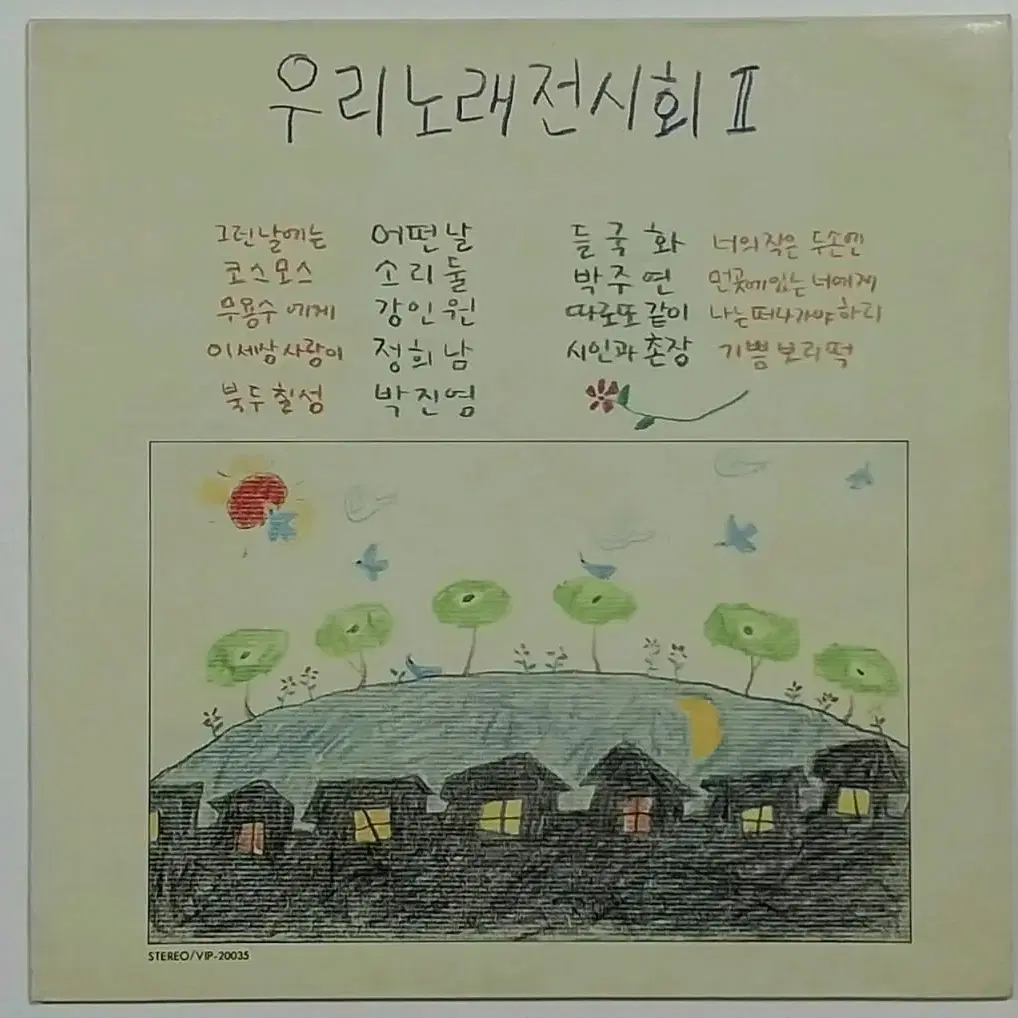 우리노래전시회 II
그런날에는 어떤날
코스모스 소리둘
무용수에게 강인원
이세상사랑이 정희남
북두칠성 박진영
들국화 너의작은 두손엔
박주연 먼곳에있는너에게
따로또같이 나는떠나가야하리
시인과촌장 기쁨보리떡
STEREO/VIP-20035